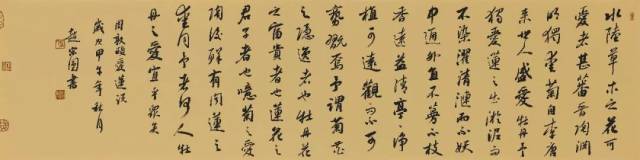 水陸草木之花可
愛者甚蕃晉陶淵
明獨愛菊自李唐
來世人盛愛牡丹予
獨愛蓮之出淤泥而
不染濯清漣而不妖
中通外直不蔓不枝
香遠益清亭亭淨
植可遠觀而不可
褻翫焉予謂菊花
之隱逸者也牡丹花
之富貴者也蓮花之
君子者也噫菊之愛
陶後鮮有聞蓮之
愛同予者何人牡
丹之愛宜乎眾矣
周敦頤愛蓮說
歲次甲午年秋月
書